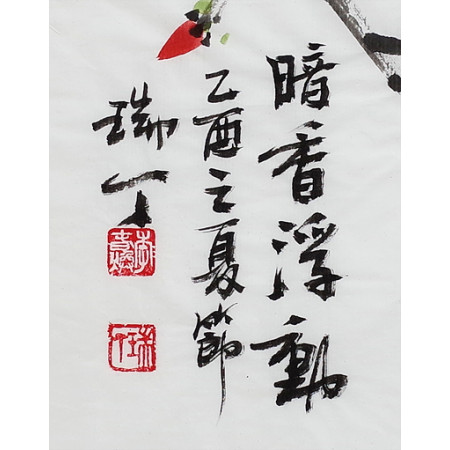 暗香浮動
乙酉之夏節
瑞丁